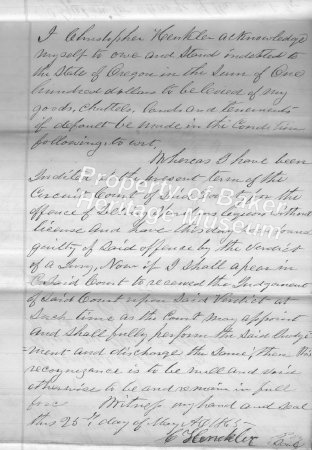 I Christopher Henkler acknowledge
myself to owe and Stand indebted to
the State of Oregon in the Sum of One
hundred dollars to be levied of my
goods, chattels, lands and tenements
if default be made in the Condition
following: to wit.
Whereas I have been
Indicted at the present term of the
Circuit Court of Said County for the
offence of Selling Spirituous liquors without
license and have been found
guilty of Said offence by the Verdict
of a Jury, Now if I Shall apear in
Said Court to received the Judgement
of Said Court upon Said Verdict at
Such time as the Court may appoint
and Shall fully perform the Said Judge-
ment and discharge the Same; then this
recognizance is to be null and void
otherwise to be and remain in full
force Witness my hand and Seal
this 25th day of May AD 1865
C Henckler Seal
Property of Baker
Heritage Museum